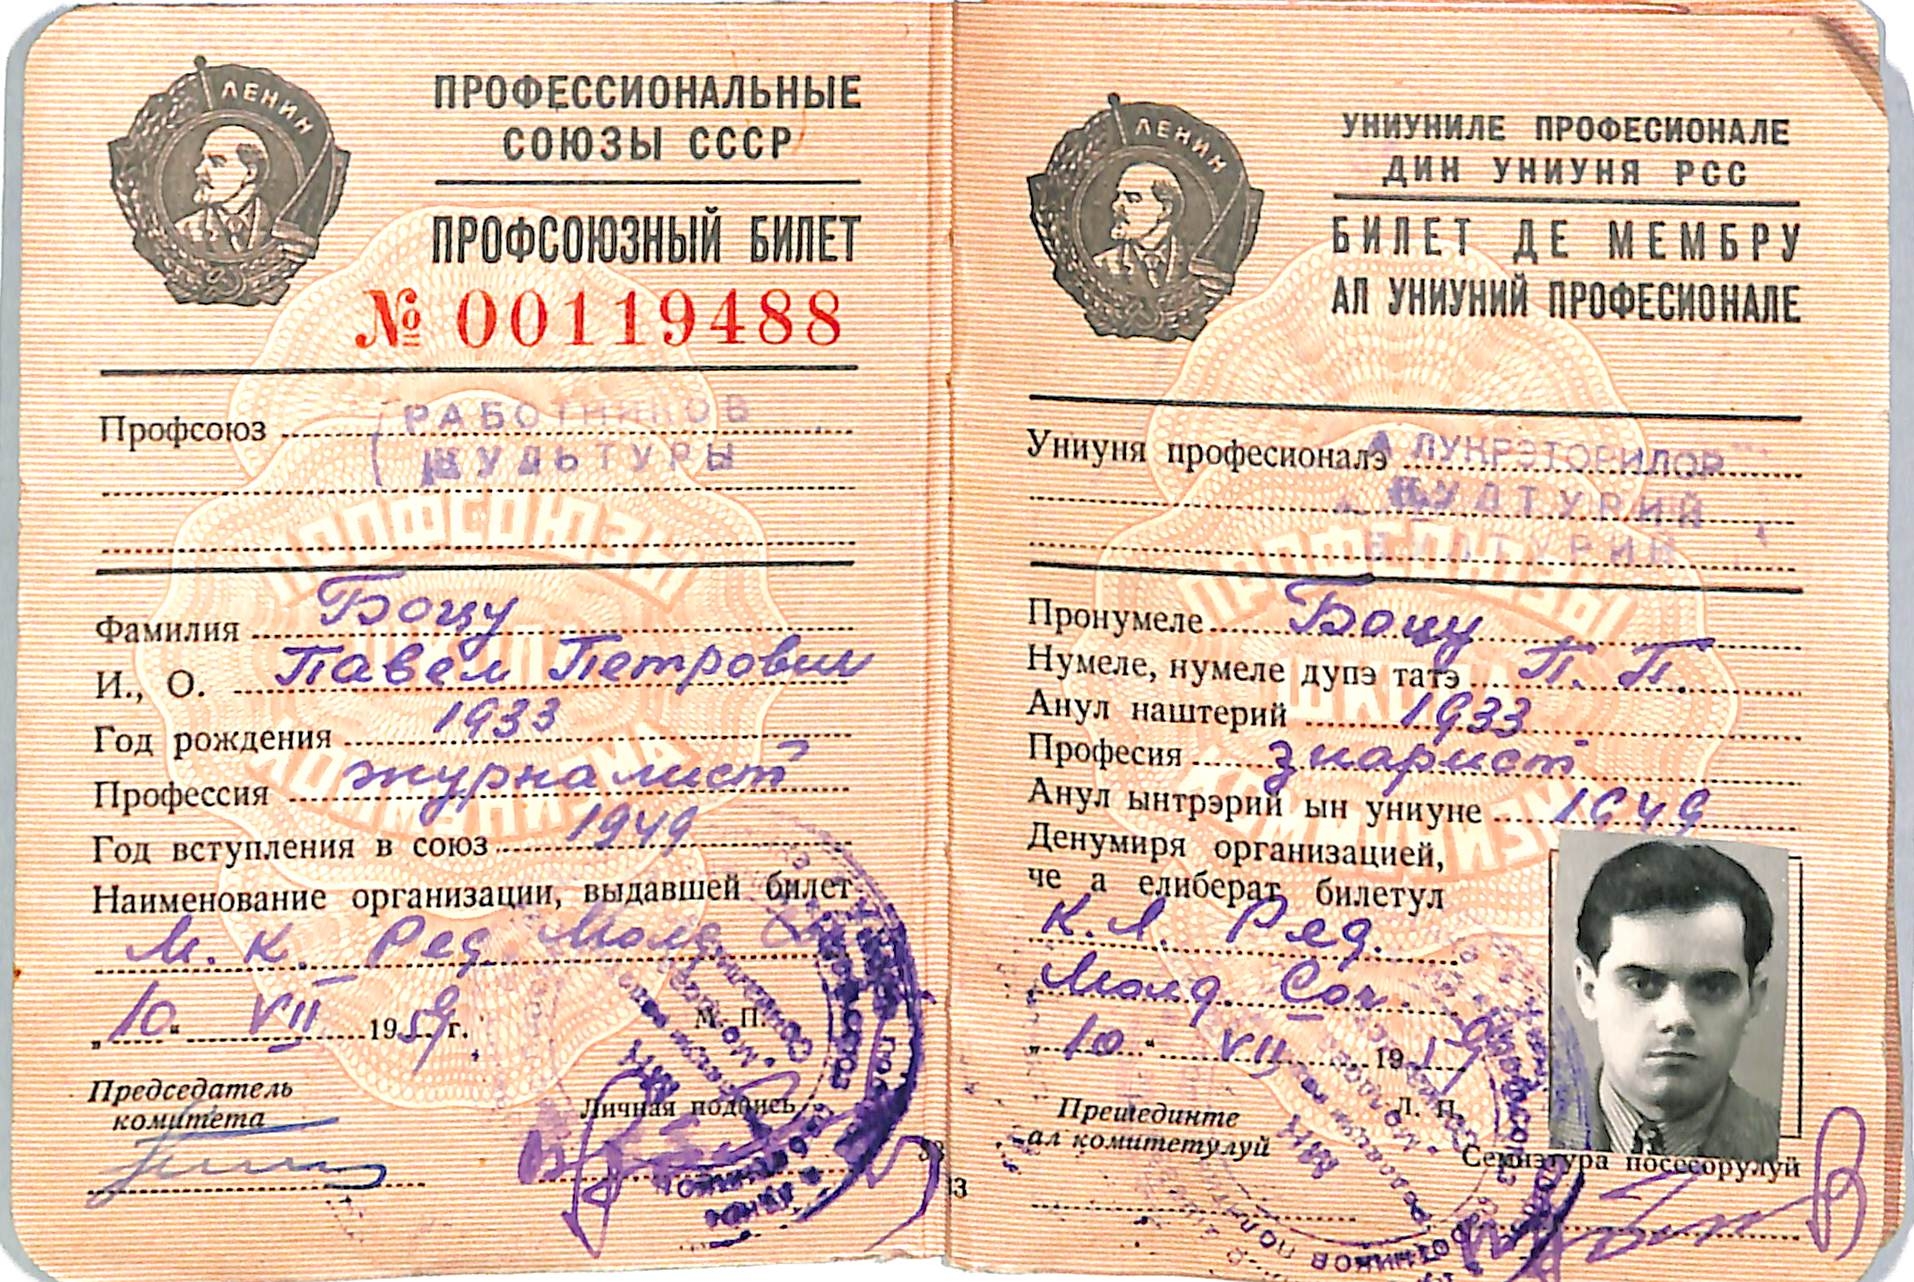 ЛЕНИН
ПРОФЕССИОНАЛЬНЫЕ
СОЮЗЫ СССР
ПРОФСОЮЗНЫЙ БИЛЕТ
№ 00119488
Профсоюз РАБОТНИКОВ
КУЛЬТУРЫ
ПРОФСОЮЗЫ
ШКОЛА
КОММУНИЗМА
Фамилия Боцу
И., О. Павел Петрович
Год рождения 1933
Профессия журналист
Год вступления в союз 1949
Наименование организации, выдавшей билет
М. К. Ред. Молд.
„10“ VII 1959 г.
М. П.
Председатель
комитета
Личная подпись
ЛЕНИН
УНИУНИЛЕ ПРОФЕСИОНАЛЕ
ДИН УНИУНЯ РСС
БИЛЕТ ДЕ МЕМБРУ
АЛ УНИУНИЙ ПРОФЕСИОНАЛЕ
Униуня професионалэ А ЛУКРЭТОРИЛОР
КУЛТУРИЙ
ПРОФСОЮЗЫ
ШКОЛА
КОММУНИЗМА
Пронумеле Боцу
Нумеле, нумеле дупэ татэ П. П.
Анул наштерий 1933
Професия зиарист
Анул ынтрэрий ын униуне 1949
Денумиря организацией,
че а елиберат билетул
К. Л. Ред.
Молд. Соч.
„10“ VII 1959
Л. П.
Прешединте
ал комитетулуй
Семнэтура посесорулуй